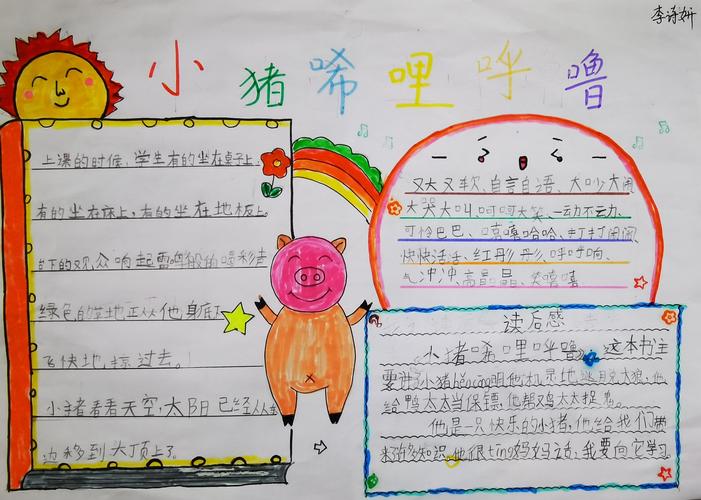 李诗妍
小猪唏哩呼噜
上课的时候,学生有的坐在桌子上,
有的坐在床上,有的坐在地板上。
台下的观众响起雷鸣般的喝彩声
绿色的草地正从他身底下
飞快地掠过去。
小猪看看天空,太阳已经从东
边移到大顶上了。
又大又软、自言自语、大吵大闹
大哭大叫、呵呵大笑、一动不动、
可怜巴巴、嘻嘻哈哈、打打闹闹、
快快活活、红彤彤、呼呼响、
气冲冲、高晶晶、笑嘻嘻
读后感
《小猪唏哩呼噜》这本书主
要讲了小猪 他机灵地逃脱大狼,他
给鸭太太当保镖,他帮鸡太太捉
他是一只快乐的小猪,他给我们带
来许多知识。他很ting妈妈话,我要向它学习